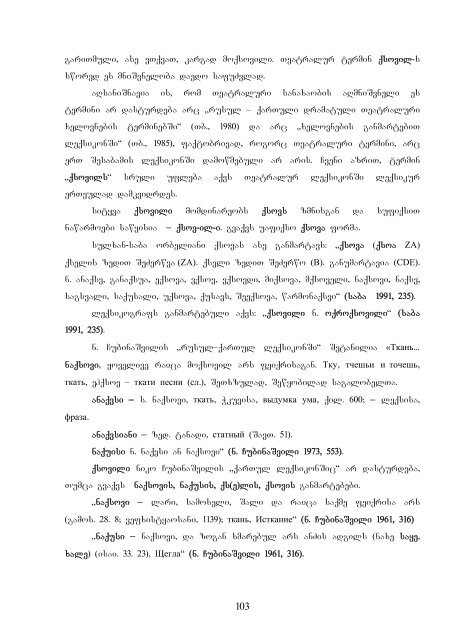 გარითმული, ასე ვთქვათ, კარგად მოქსოვილი. თეატრალურ ტერმინ ქსოვილ-ს
სწორედ ეს მნიშვნელობა დაედო საფუძვლად.
აღსანიშნავია ის, რომ თეატრალური სანახაობის აღმნიშვნელი ეს
ტერმინი არ დასტურდება არც „რუსულ – ქართული დრამატული თეატრალური
ხელოვნების ტერმინებში“ (თბ., 1980) და არც „ხელოვნების განმარტებით
ლექსიკონში“ (თბ., 1985), ფაქტობრივად, როგორც თეატრალური ტერმინი, არც
ერთ შესაბამის ლექსიკონში დამოწმებული არ არის. ჩვენი აზრით, ტერმინ
„ქსოვილს“ სრული უფლება აქვს თეატრალურ ლექსიკონში ლექსიკურ
ერთეულად დამკვიდრდეს.
სიტყვა ქსოვილი მომდინარეობს ქსოვს ზმნისგან და სუფიქსით
ნაწარმოები საწყისია – ქსოვ-ილ-ი. გვაქვს უაფიქსო ქსოვა ფორმა.
სულხან-საბა ორბელიანი ქსოვას ასე განმარტავს: „ქსოვა (ქსოა ZA)
ქსელის ზედით შეძერწვა (ZA). ქსელი ზედით შეძერწო (B). განუმარტავია (CDE).
ნ. ანაქსე, განაქსუა, ექსოვა, ვქსოვ, ვქსოვდი, მიქსოვა, მქსოველი, ნაქსოვი, ნაქსე,
საგსვალი, საქუსალი, უქსოვა, ქუსავს, შეექსოვა, წარმონაქსევი“ (საბა 1991, 235).
ლექსიკოგრაფს განმარტებული აქვს: „ქსოვილი ნ. ოქროქსოვილი“ (საბა
1991, 235).
ნ. ჩუბინაშვილის „რუსულ–ქართულ ლექსიკონში“ შეტანილია «Ткань...
ნაქსოვი, ყოველივე რაიცა მოქსოვილ არს ფეიქრისაგან. Тку, тчешьи и точешь,
ткать, ვჰქსოვ – ткати песни (сл.), შეთხზულად, შეწყობილად საგალობელთა.
ანაქვსი = ს. ნაქსოვი, ткать, ჭკუვისა, выдумка ума, ქილ. 600; = ლექსისა,
фраза.
ანაქვსიანი = ზედ. ტანადი, статный (შავთ. 51).
ნაქუისი ნ. ნაქვსი ან ნაქსოვი“ (ნ. ჩუბინაშვილი 1973, 553).
ქსოვილი ნიკო ჩუბინაშვილის „ქართულ ლექსიკონშიც“ არ დასტურდება,
თუმცა გვაქვს ნაქსოვის, ნაქუსის, ქს(ე)ლის, ქსოვის განმარტებები.
„ნაქსოვი = ლარი, სამოსელი, შალი და რაიცა საქმე ფეიქრისა არს
(გამოს. 28. 8; ვეფხისტყაოსანი, 1139); ткань, Исткание“ (ნ. ჩუბინაშვილი 1961, 316)
„ნაქუსი = ნაქსოვი, და ზოგან ხმარებულ არს ანძის ადგილს (ნახე საყე.
ხალე) (ისაი. 33. 23), Щегла“ (ნ. ჩუბინაშვილი 1961, 316).
103